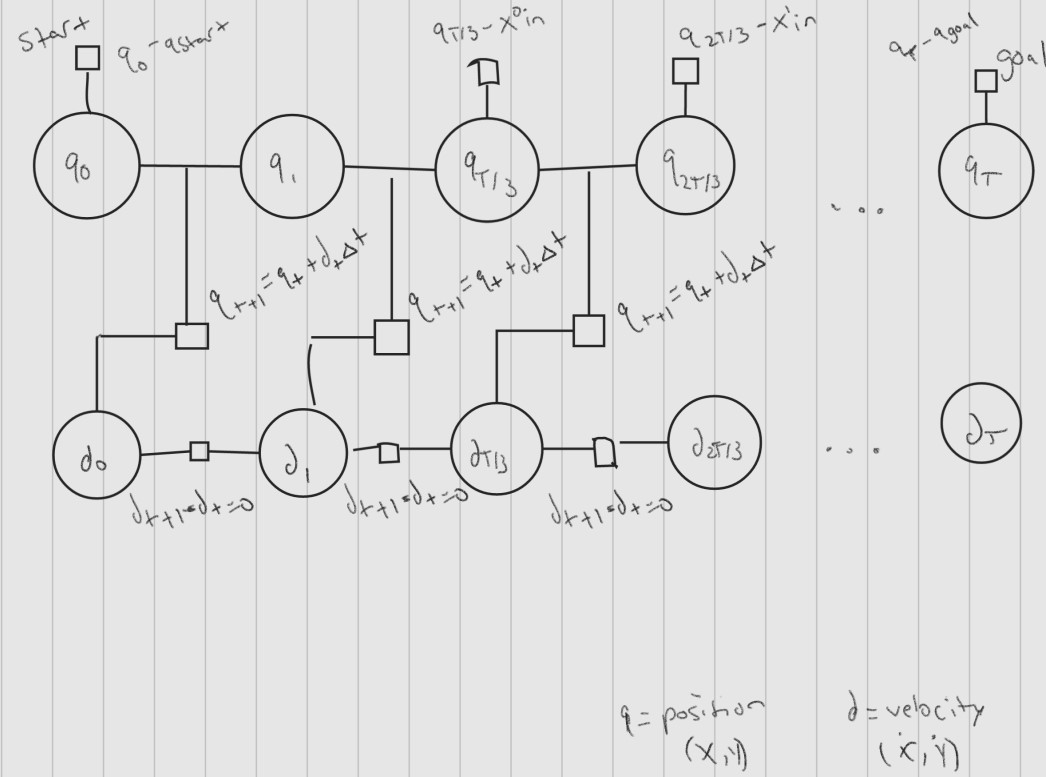 start
q₀-qstart
qT/3-X⁰in
q2T/3-X¹in
qT-qgoal
goal
q₀
q₁
qT/3
q2T/3
qT
. . .
qt+1=qt+dtΔt
qt+1=qt+dtΔt
qt+1=qt+dtΔt
d₀
d₁
dT/3
d2T/3
dT
. . .
dt+1-dt=0
dt+1-dt=0
dt+1-dt=0
q=position
(X,Y)
d=velocity
(Ẋ,Ẏ)